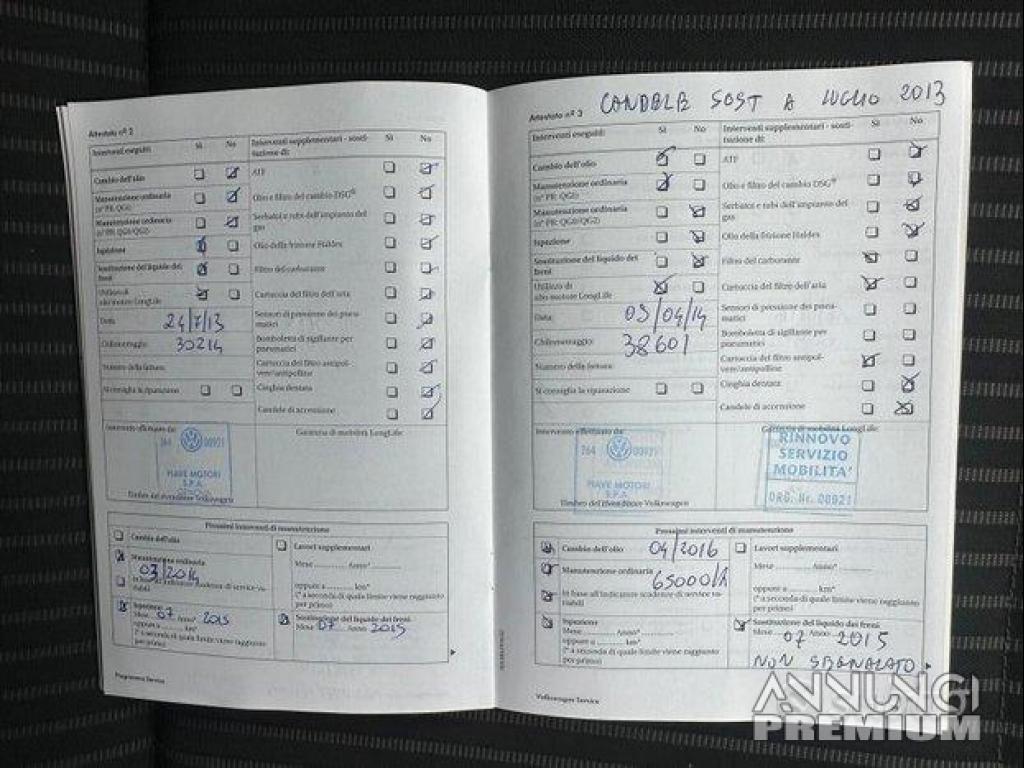 Attestato nº 2
Interventi eseguiti: Sì No
Cambio dell'olio
Manutenzione ordinaria
(nº PR: QG1)
Manutenzione ordinaria
(nº PR: QG0/QG2)
Ispezione
Sostituzione del liquido dei
freni
Utilizzo di
olio motore LongLife
Data: 24/7/13
Chilometraggio: 30214
Numero della fattura:
Si consiglia la riparazione
Interventi supplementari - sosti-
tuzione di: Sì No
ATF
Olio e filtro del cambio DSG®
Serbatoi e tubi dell'impianto del
gas
Olio della frizione Haldex
Filtro del carburante
Cartuccia del filtro dell'aria
Sensori di pressione dei pneu-
matici
Bomboletta di sigillante per
pneumatici
Cartuccia del filtro antipol-
vere/antipolline
Cinghia dentata
Candele di accensione
Intervento effettuato da:
264 00921
PIAVE MOTORI
S.P.A.
Timbro del rivenditore Volkswagen
Garanzia di mobilità LongLife:
Prossimi interventi di manutenzione
Cambio dell'olio
Manutenzione ordinaria
03/2014
In base all'indicatore scadenze di service va-
riabili
Ispezione
Mese 07 Anno* 2015
oppure a ............ km*
(* a seconda di quale limite viene raggiunto
per primo)
Lavori supplementari
Mese ............ Anno* ............
oppure a ............ km*
(* a seconda di quale limite viene raggiunto
per primo)
Sostituzione del liquido dei freni
Mese 07 Anno 2015
Programma Service
CANDELE SOST A LUGLIO 2013
Attestato nº 3
Interventi eseguiti: Sì No
Cambio dell'olio
Manutenzione ordinaria
(nº PR: QG1)
Manutenzione ordinaria
(nº PR: QG0/QG2)
Ispezione
Sostituzione del liquido dei
freni
Utilizzo di
olio motore LongLife
Data: 03/04/14
Chilometraggio: 38601
Numero della fattura:
Si consiglia la riparazione
Interventi supplementari - sosti-
tuzione di: Sì No
ATF
Olio e filtro del cambio DSG®
Serbatoi e tubi dell'impianto del
gas
Olio della frizione Haldex
Filtro del carburante
Cartuccia del filtro dell'aria
Sensori di pressione dei pneu-
matici
Bomboletta di sigillante per
pneumatici
Cartuccia del filtro antipol-
vere/antipolline
Cinghia dentata
Candele di accensione
Intervento effettuato da:
264 00921
PIAVE MOTORI
S.P.A.
Timbro del rivenditore Volkswagen
Garanzia di mobilità LongLife:
RINNOVO
SERVIZIO
MOBILITA'
ORG. Nr. 00921
Prossimi interventi di manutenzione
Cambio dell'olio 04/2016
Manutenzione ordinaria
65000
In base all'indicatore scadenze di service va-
riabili
Ispezione
Mese ............ Anno* ............
oppure a ............ km*
(* a seconda di quale limite viene raggiunto
per primo)
Lavori supplementari
Mese ............ Anno* ............
oppure a ............ km*
(* a seconda di quale limite viene raggiunto
per primo)
Sostituzione del liquido dei freni
Mese 07 Anno 2015
NON SEGNALATO
Volkswagen Service
ANNUNCI
PREMIUM